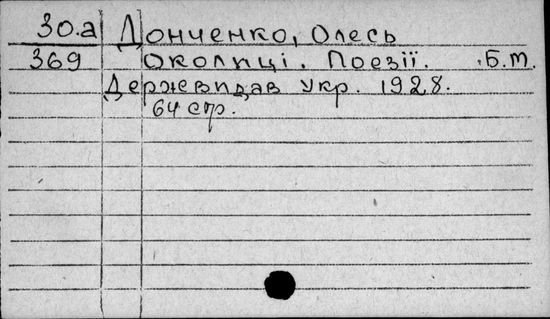 30.а Донченко, Олесь
369 Околиці. Поезії. Б.м.
Держвидав Укр. 1928.
64 стр.